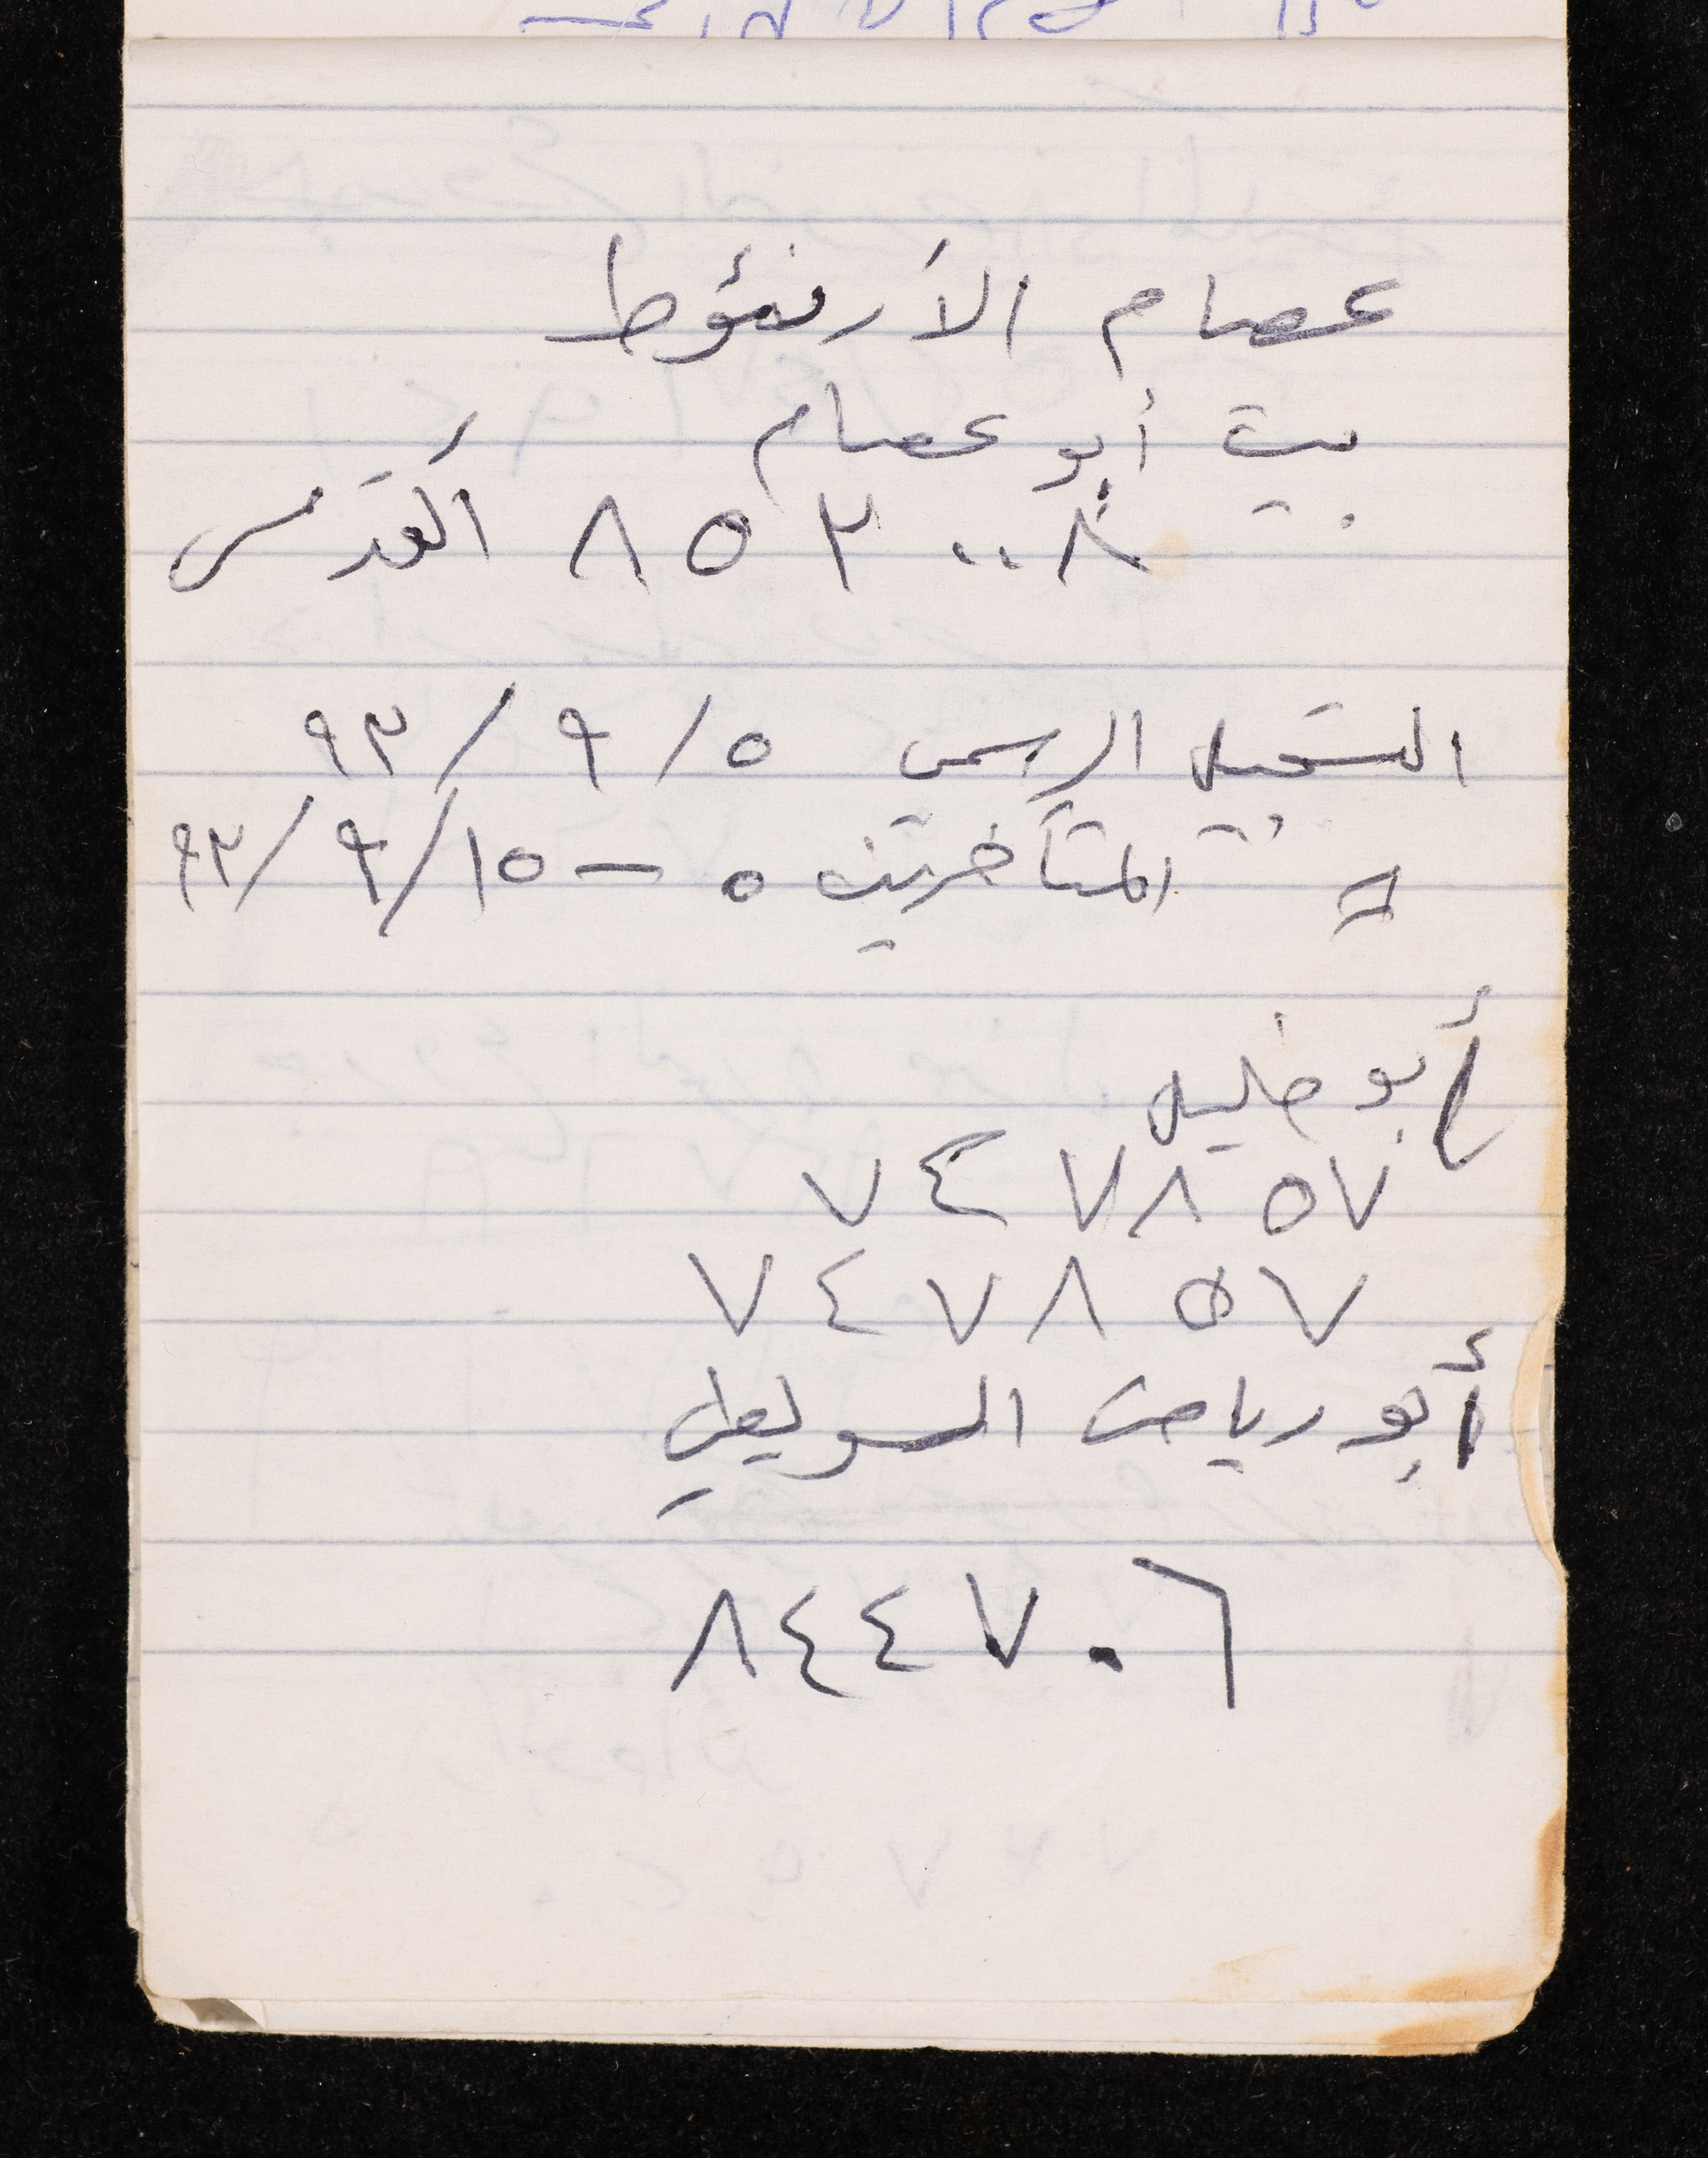 عصام الأرنؤوط
بيت أبو عصام
٨٥٢٠٠٨ القدس
التسجيل الرسمي ٥/٩/٩٣
= المتأخرين ٥ – ١٥/٩/٩٣
أبو خليل
٧٤٧٨٥٧
٧٤٧٨٥٧
أبو رياض السويطي
٨٤٤٧٠٦